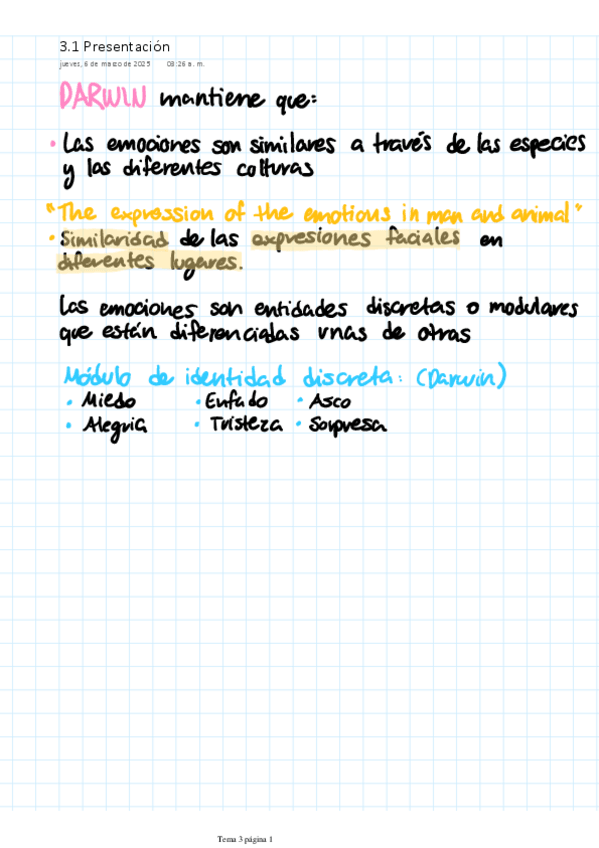 3.1 Presentación
jueves, 6 de marzo de 2025 03:26 a. m.
DARWIN mantiene que:
• Las emociones son similares a través de las especies
y las diferentes culturas
"The expression of the emotions in man and animal"
• Similaridad de las expresiones faciales en
diferentes lugares.
Las emociones son entidades discretas o modulares
que están diferenciadas unas de otras
Módulo de identidad discreta: (Darwin)
• Miedo • Enfado • Asco
• Alegria • Tristeza • Sorpresa
Tema 3 página 1